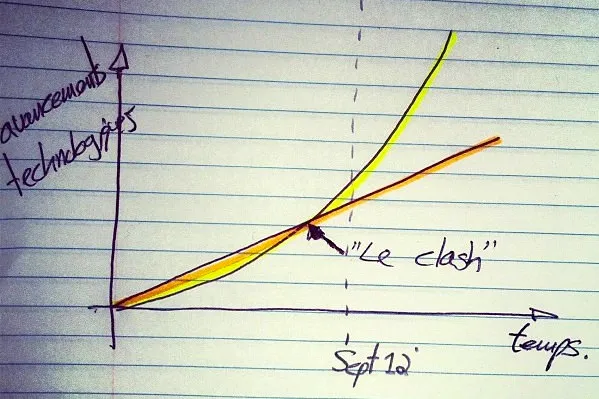 avancements
technologiques
"Le clash"
Sept 12'
temps.